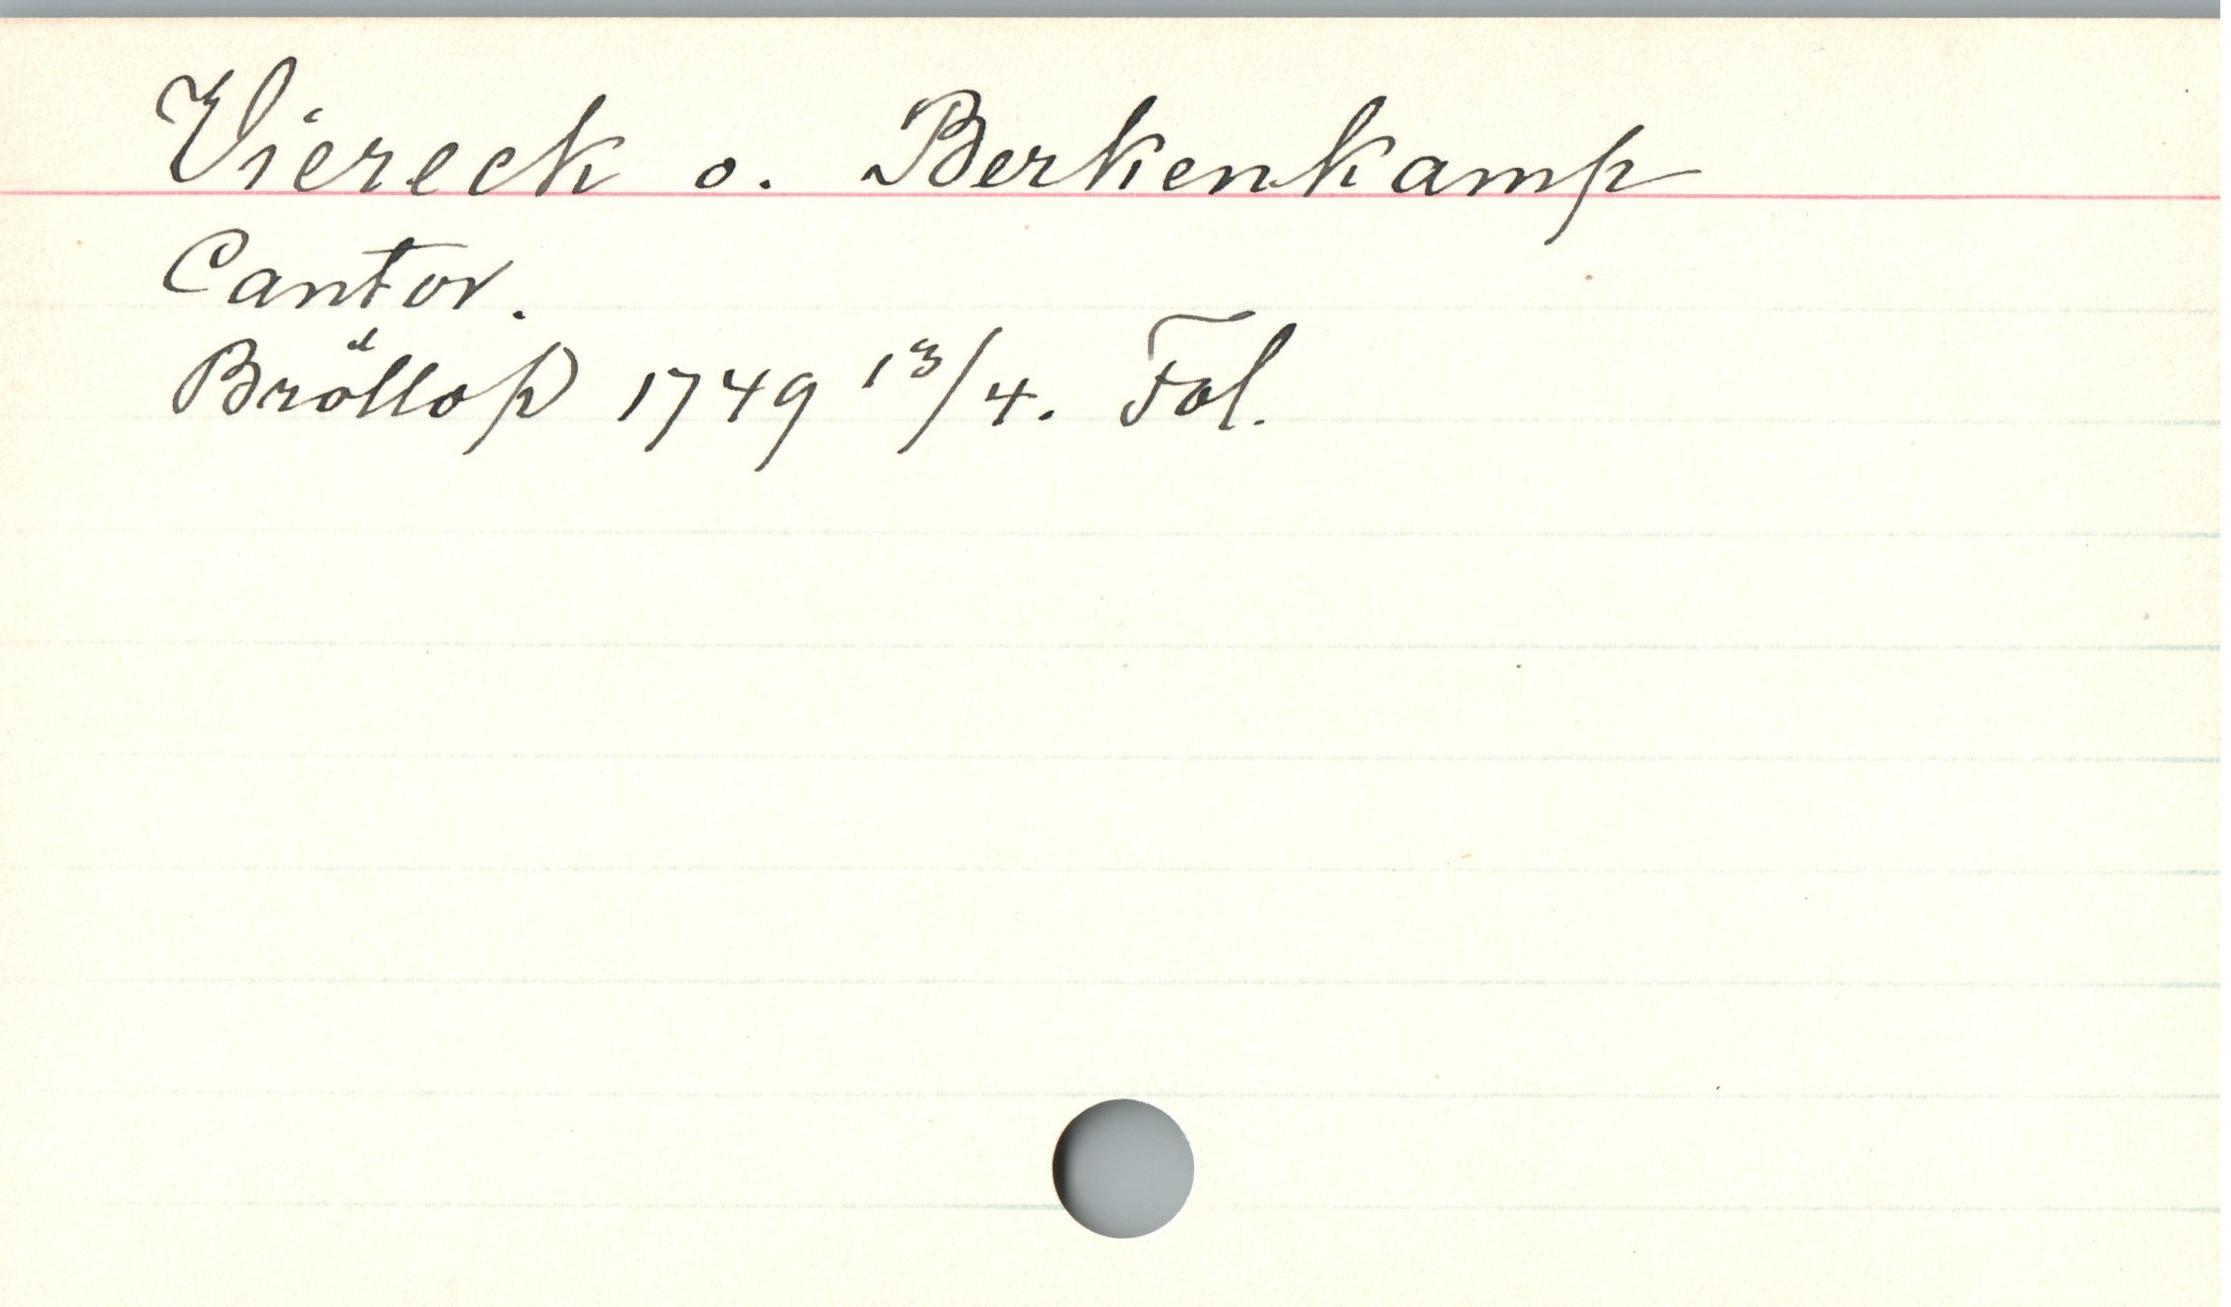 Viereck o. Berkenkamp
Cantor.
Bröllop 1749 13/4. Fol.